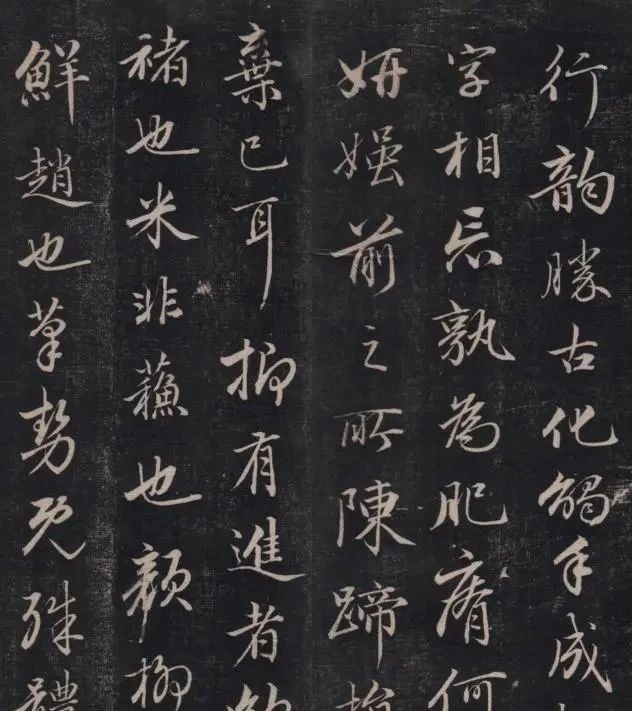 行韵勝古化觸手成
字相忘孰為肥瘠何
妍媸前之所陳蹄
棄已耳抑有進者
褚也米非蘓也顏柳
鮮趙也筆勢既殊體